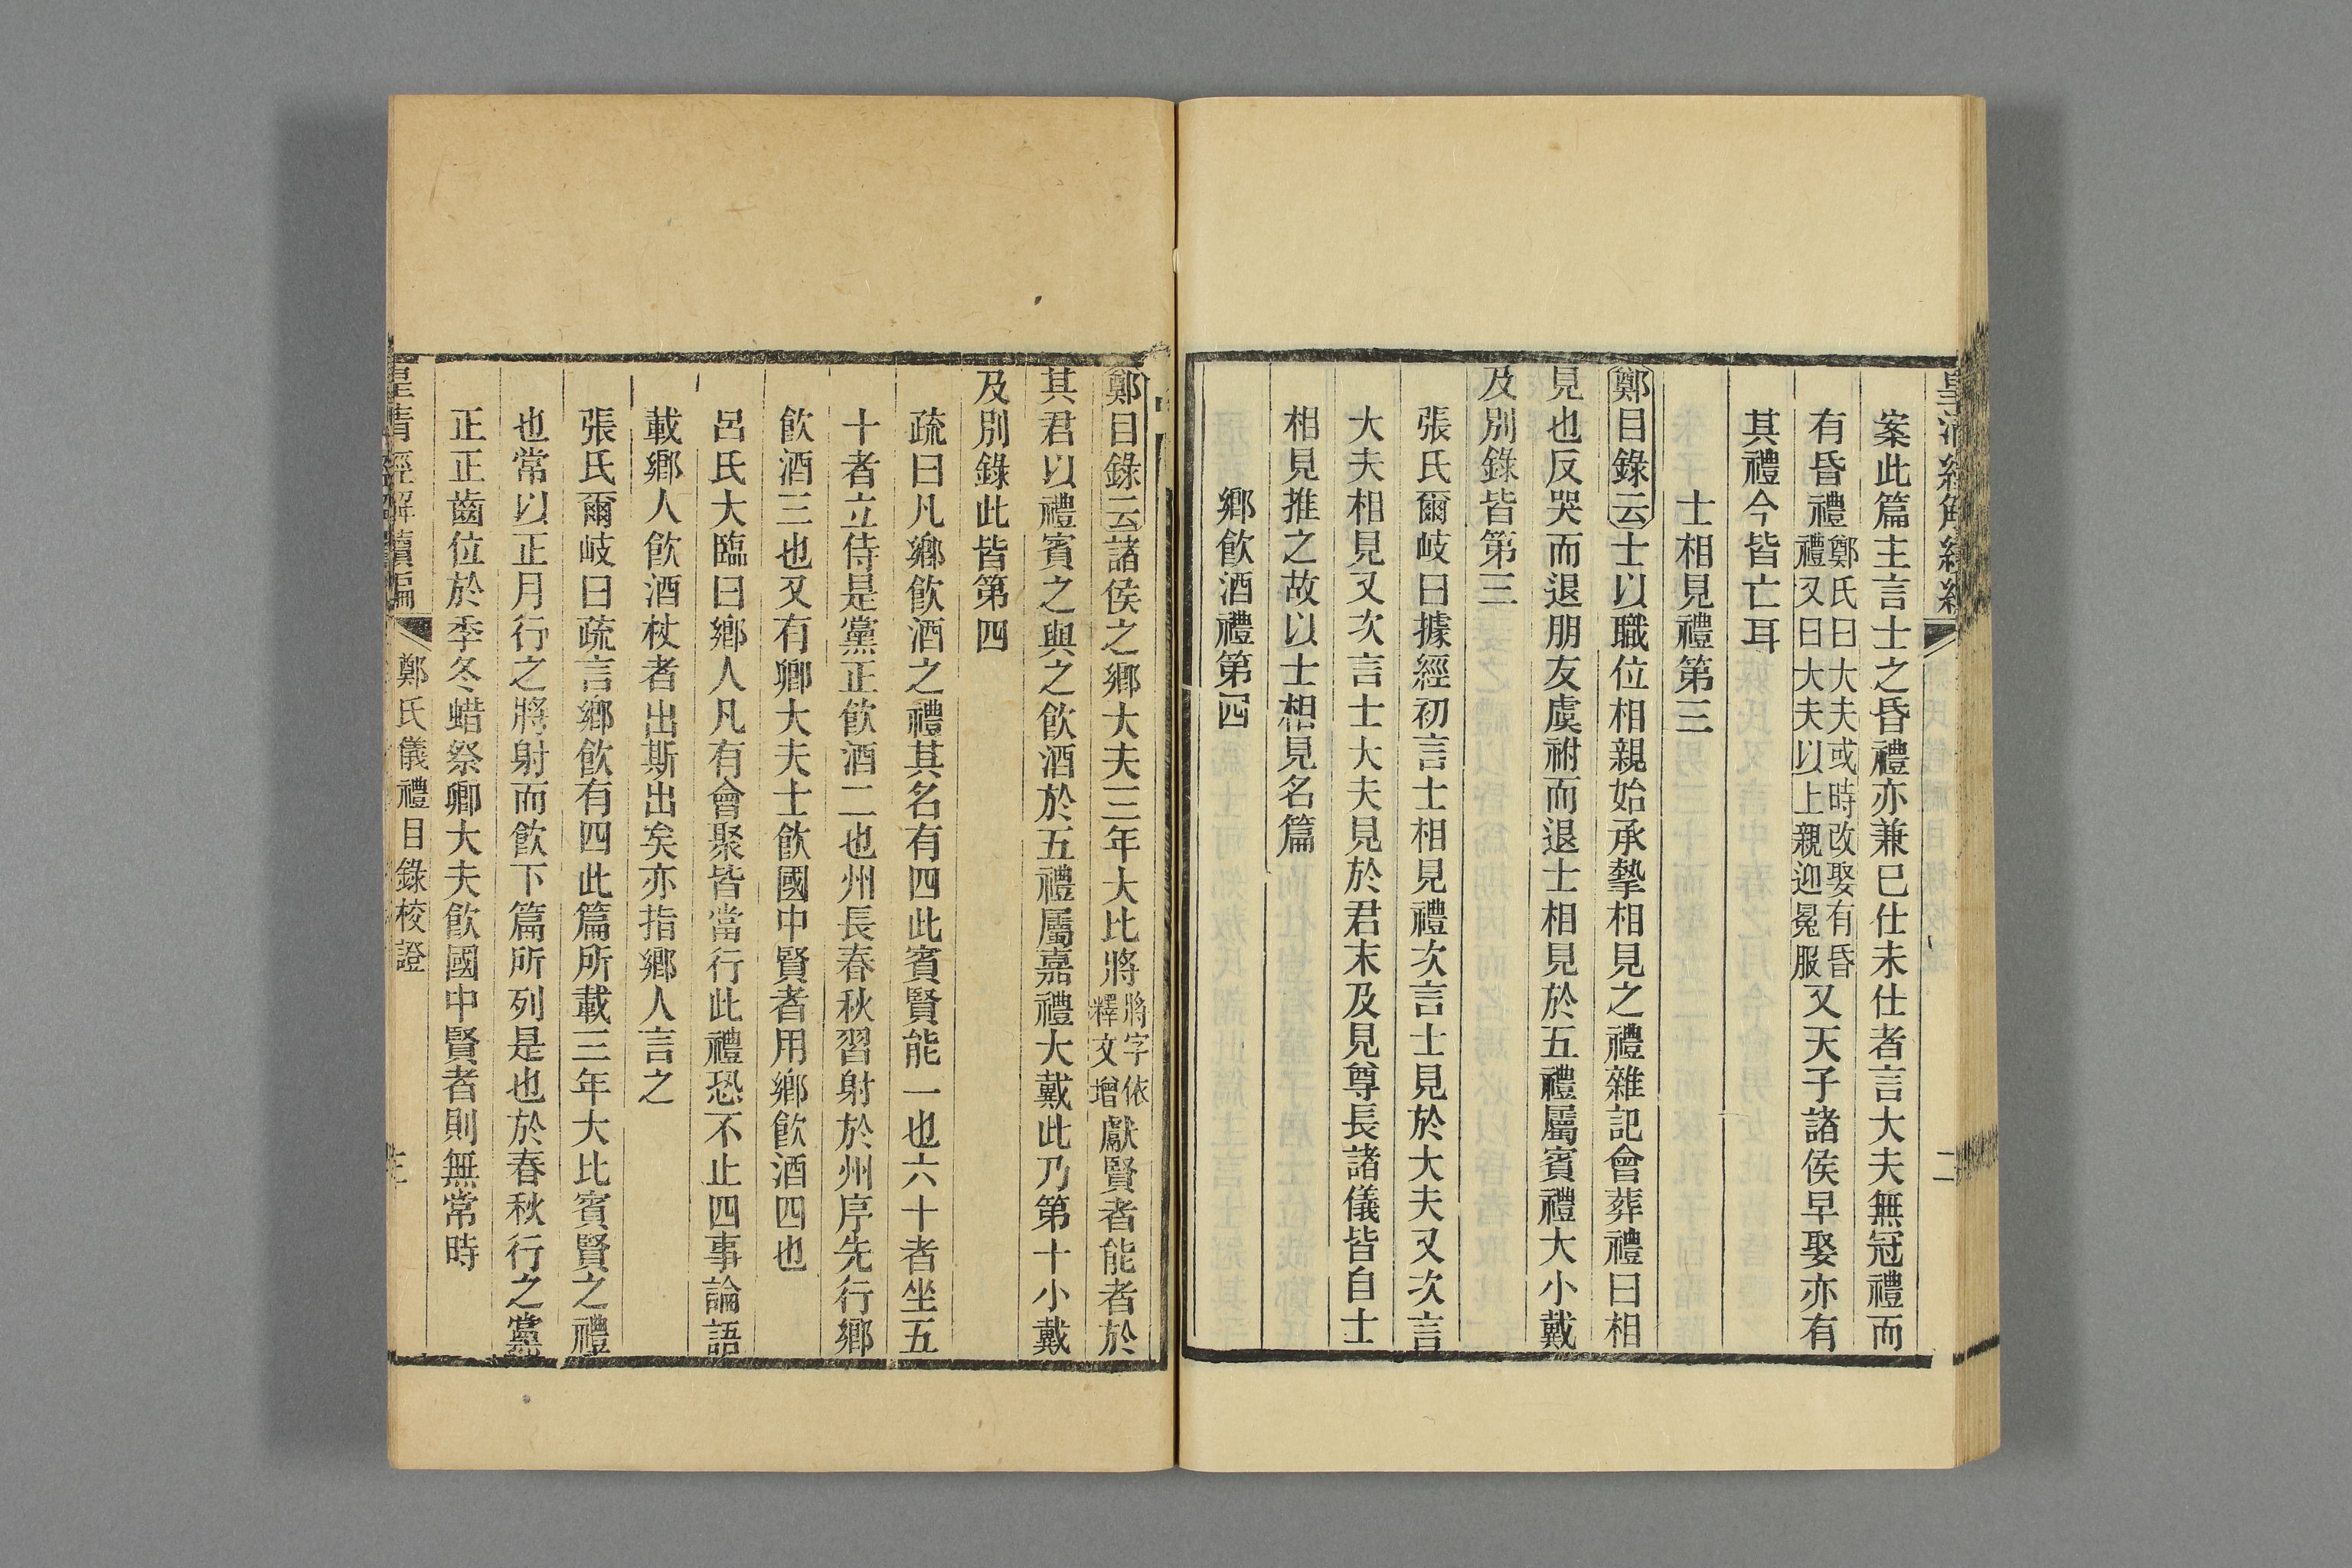 案此篇主言士之昏禮亦兼已仕未仕者言大夫無冠禮而
有昏禮鄭氏曰大夫或時改娶有昏禮又曰大夫以上親迎冕服又天子諸侯早娶亦有
其禮今皆亡耳
士相見禮第三
鄭目錄云士以職位相親始承摯相見之禮雜記會葬禮曰相
見也反哭而退朋友虞祔而退士相見於五禮屬賓禮大小戴
及別錄皆第三
張氏爾岐曰據經初言士相見禮次言士見於大夫又次言
大夫相見又次言士大夫見於君末及見尊長諸儀皆自士
相見推之故以士相見名篇
鄉飲酒禮第四
鄭目錄云諸侯之鄉大夫三年大比將將字依釋文增獻賢者能者於
其君以禮賓之與之飲酒於五禮屬嘉禮大戴此乃第十小戴
及別錄此皆第四
疏曰凡鄉飲酒之禮其名有四此賓賢能一也六十者坐五
十者立侍是黨正飲酒二也州長春秋習射於州序先行鄉
飲酒三也又有鄉大夫士飲國中賢者用鄉飲酒四也
呂氏大臨曰鄉人凡有會聚皆當行此禮恐不止四事論語
載鄉人飲酒杖者出斯出矣亦指鄉人言之
張氏爾岐曰疏言鄉飲有四此篇所載三年大比賓賢之禮
也常以正月行之將射而飲下篇所列是也於春秋行之黨
正正齒位於季冬蜡祭鄉大夫飲國中賢者則無常時
皇清經解續編
鄭氏儀禮目錄校證